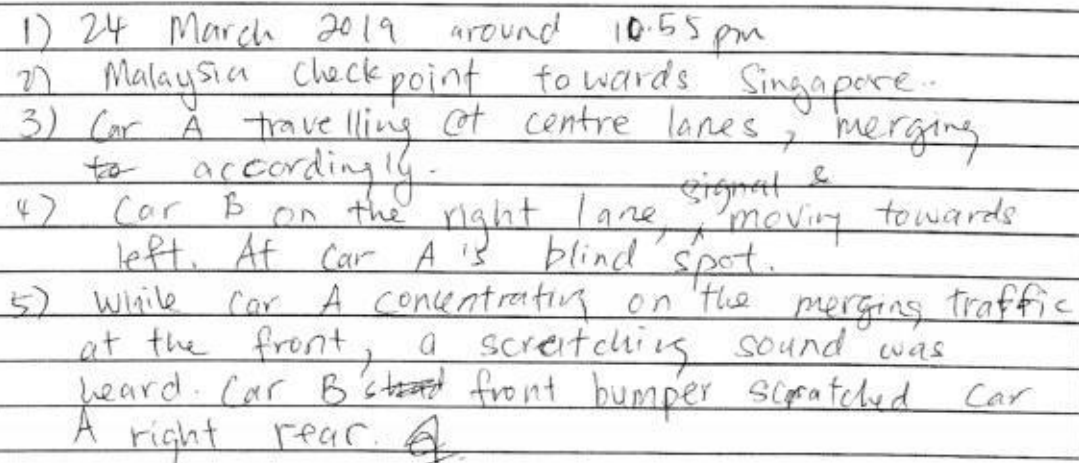 1) 24 March 2019 around 10.55 pm
2) Malaysia checkpoint towards Singapore..
3) Car A travelling at centre lanes, merging
to accordingly.
4) Car B on the right lane, signal & moving towards
left. At Car A's blind spot.
5) While Car A concentrating on the merging traffic
at the front, a scratching sound was
heard. Car B's front bumper scratched Car
A right rear.